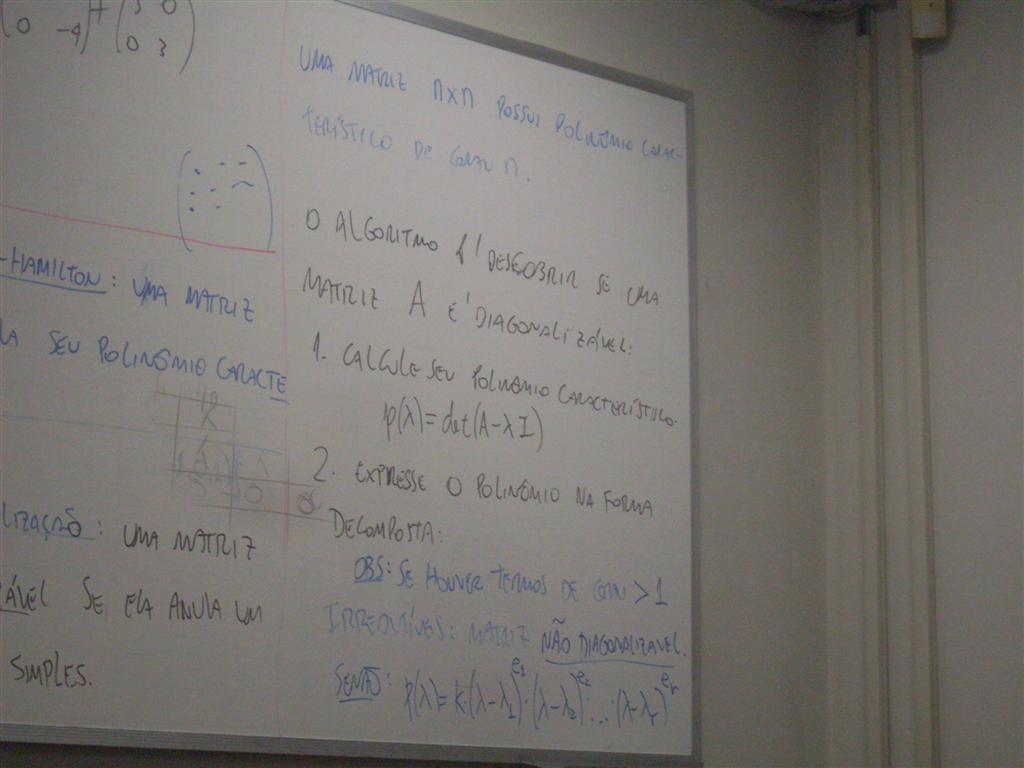 (0 -4) + (3 0
0 3)
-HAMILTON: UMA MATRIZ
LA SEU POLINÔMIO CARACTE
LIZAÇÃO: UMA MATRIZ
ÁVEL SE, ELA ANULA UM
SIMPLES.
UMA MATRIZ nxn POSSUI POLINÔMIO CARAC-
TERÍSTICO DE GRAU n.
O ALGORITMO P/ DESCOBRIR SE UMA
MATRIZ A É DIAGONALIZÁVEL:
1. CALCULE SEU POLINÔMIO CARACTERÍSTICO.
p(λ)=det(A-λI)
2. EXPRESSE O POLINÔMIO NA FORMA
DECOMPOSTA:
OBS: SE HOUVER TERMOS DE GRAU >1
IRREDUTÍVEIS: MATRIZ NÃO DIAGONALIZAVEL.
SENÃO: p(λ)=k.(λ-λ₁)^e₁.(λ-λ₂)^e₂. ... .(λ-λr)^er